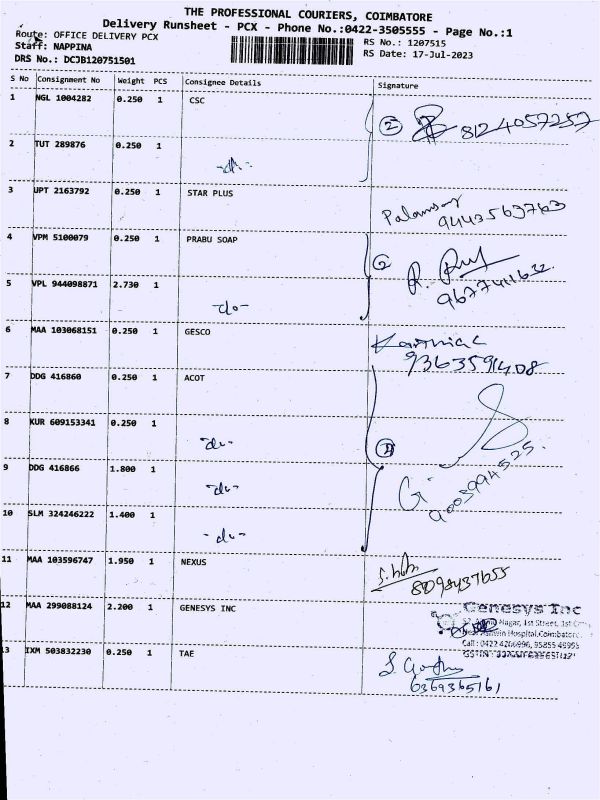 THE PROFESSIONAL COURIERS, COIMBATORE
Delivery Runsheet - PCX - Phone No.:0422-3505555 - Page No.:1
Route: OFFICE DELIVERY PCX
RS No.: 1207515
Staff: NAPPINA
RS Date: 17-Jul-2023
DRS No.: DCJB120751501
S No Consignment No Weight PCS Consignee Details Signature
1 NGL 1004282 0.250 1 CSC
② 8124057257
2 TUT 289876 0.250 1
-do-
3 UPT 2163792 0.250 1 STAR PLUS
9443563763
4 VPM 5100079 0.250 1 PRABU SOAP
②
5 VPL 944098871 2.730 1
-do-
6 MAA 103068151 0.250 1 GESCO
9363591408
7 DDG 416860 0.250 1 ACOT
8 KUR 609153341 0.250 1
-do-
④
9 DDG 416866 1.800 1
-do-
9003994525
10 SLM 324246222 1.400 1
-do-
11 MAA 103596747 1.950 1 NEXUS
8098437655
12 MAA 299088124 2.200 1 GENESYS INC
Genesys Inc
Nagar, 1st Street, 1st
Hospital, Coimbatore
Call : 0422 4266996, 95855 48995
13 IXM 503832230 0.250 1 TAE
6369365161